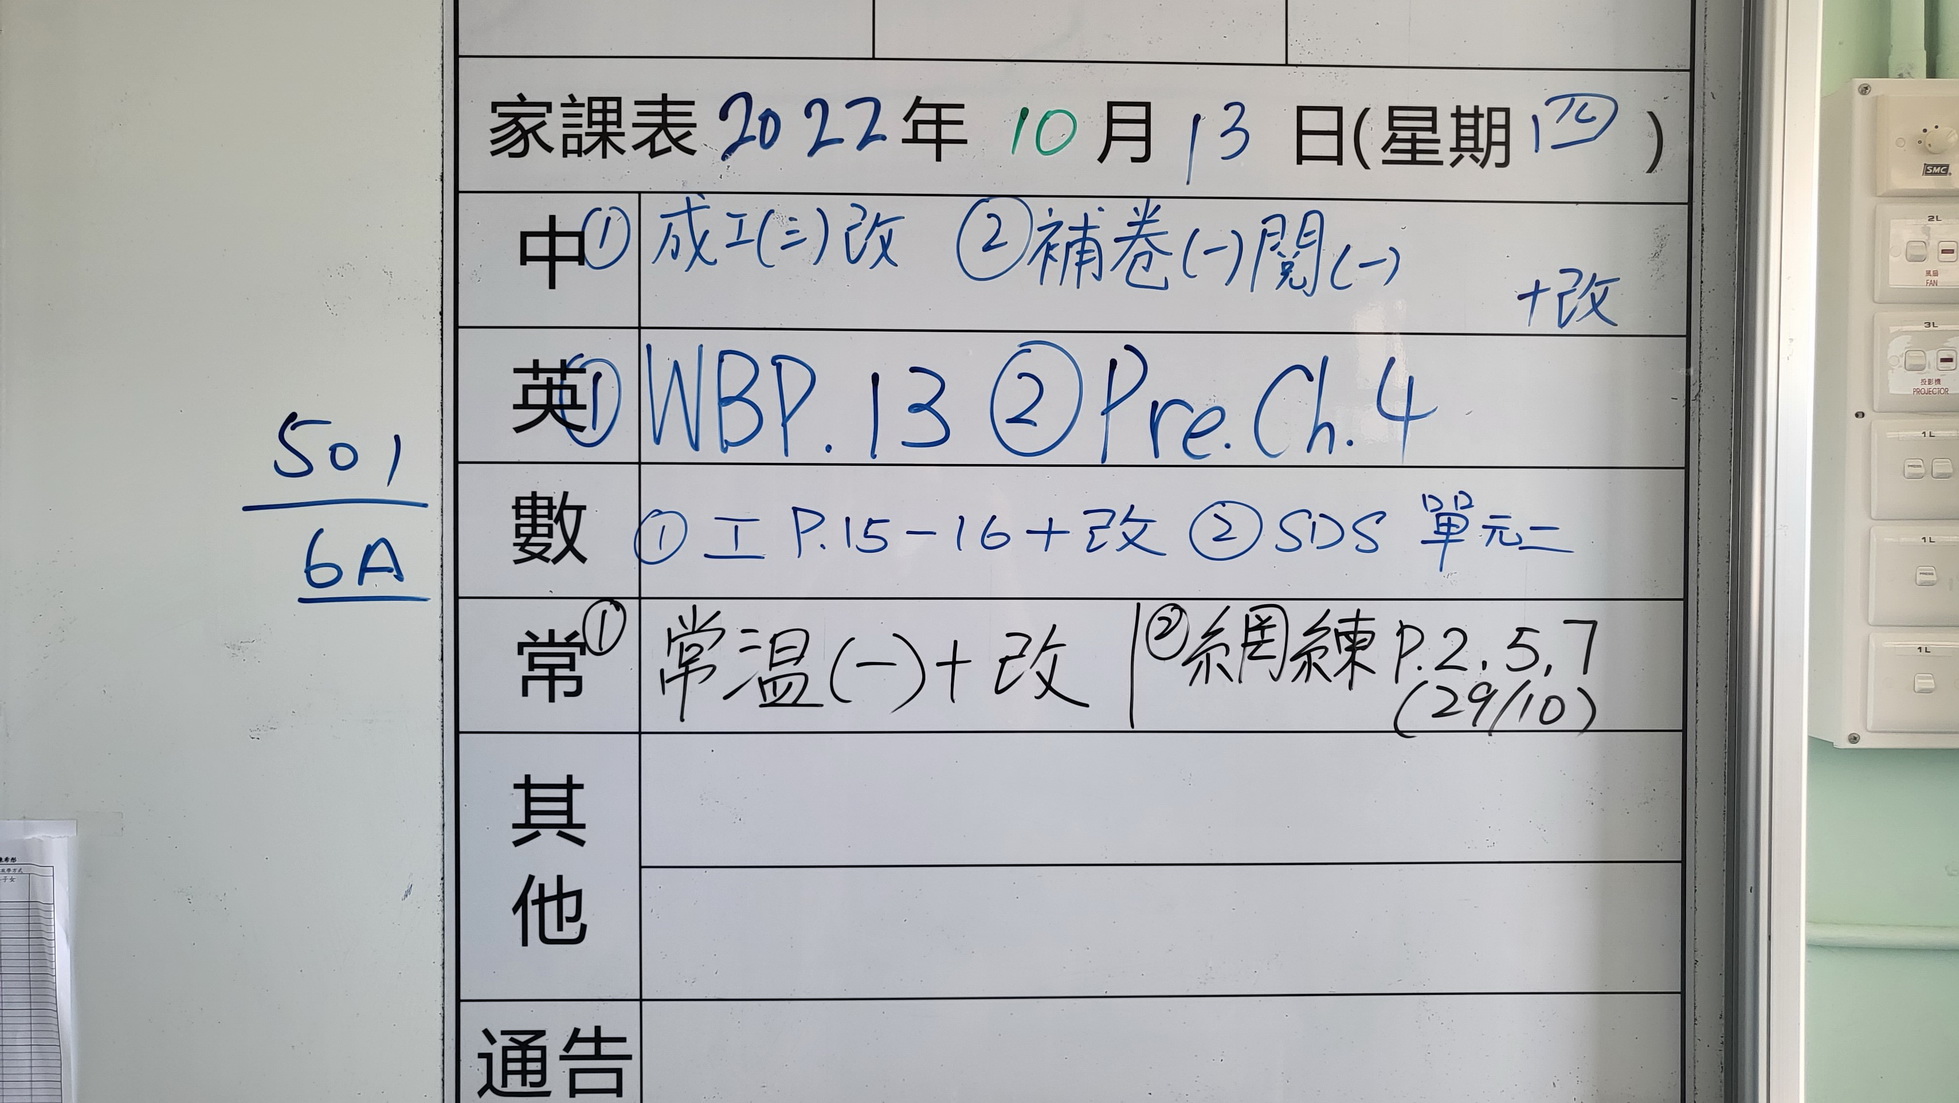 家課表 2022年 10月 13日(星期四)
中 ① 成工(三)改 ② 補卷(一)閱(一)
+改
英 ① WBP.13 ② Pre.Ch.4
數 ① 工 P.15-16+改 ② SDS 單元二
常 ① 常溫(一)+改 ② 網練 P.2,5,7
(29/10)
其他
通告
501
6A
SMC
2L
風扇
FAN
3L
投影機
PROJECTOR
1L
1L
1L